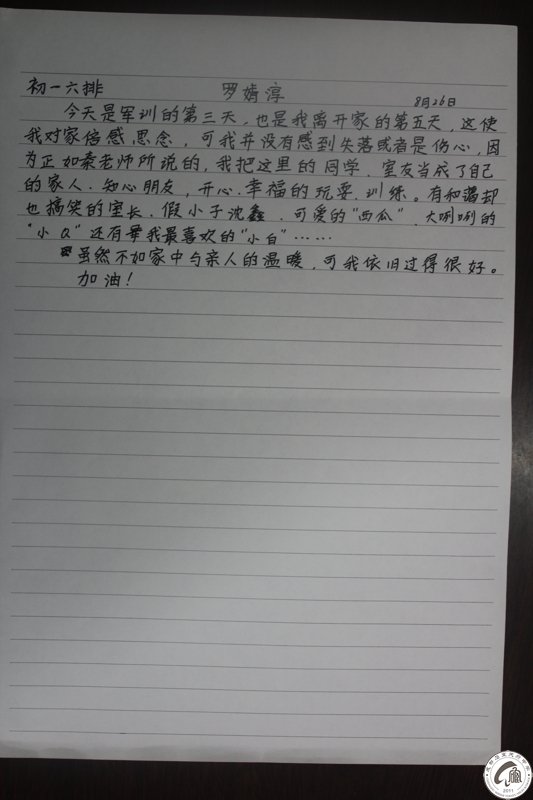 初一六排 罗婧淳 8月26日
今天是军训的第三天，也是我离开家的第五天，这使
我对家倍感思念，可我并没有感到失落或者是伤心，因
为正如秦老师所说的，我把这里的同学、室友当成了自己
的家人、知心朋友，开心、幸福的玩耍、训练。有和蔼却
也搞笑的室长、假小子沈鑫、可爱的"西瓜"、大咧咧的
"小Q"还有我最喜欢的"小白"……
虽然不如家中与亲人的温暖，可我依旧过得很好。
加油！
2011